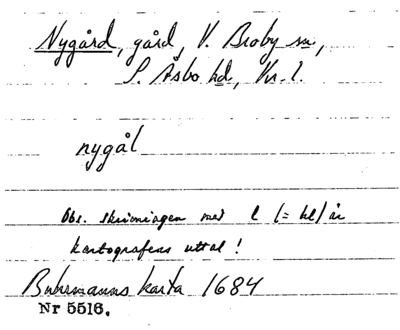 Nygård, gård, V. Broby sn,
S. Åsbo hd, Kr. l.
nygål
Obs. skrivningen med l (= kl) är
kartografens uttal!
Buhrmanns karta 1684
Nr 5516.